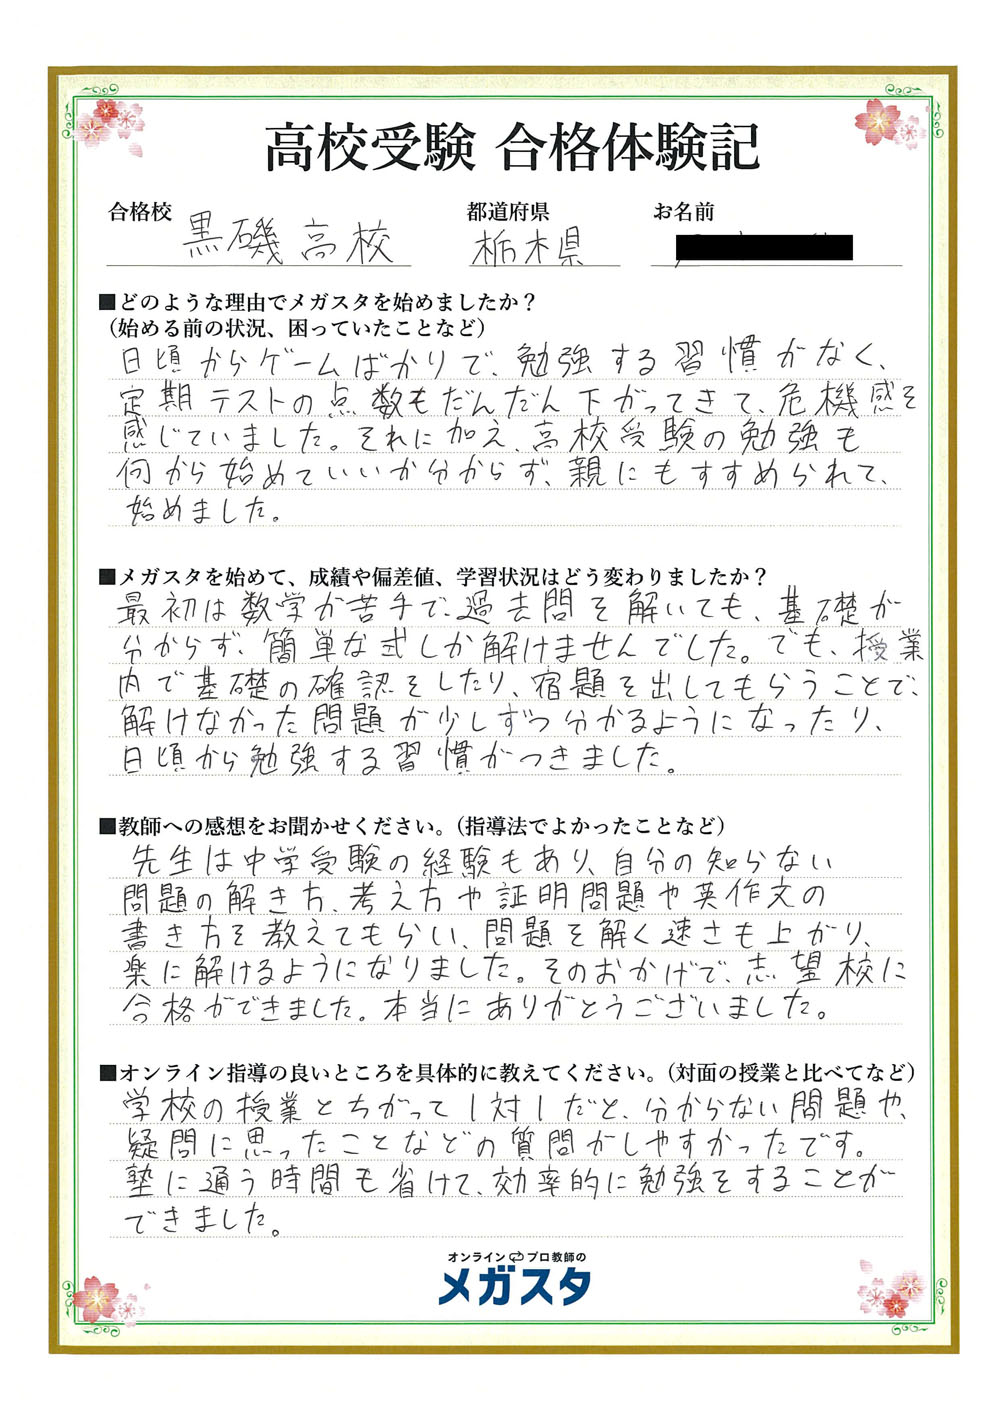 高校受験 合格体験記
合格校 黒磯高校 都道府県 栃木県 お名前
■どのような理由でメガスタを始めましたか？
（始める前の状況、困っていたことなど）
日頃からゲームばかりで、勉強する習慣がなく、
定期テストの点数もだんだん下がってきて、危機感を
感じていました。それに加え、高校受験の勉強も
何から始めていいか分からず、親にもすすめられて、
始めました。
■メガスタを始めて、成績や偏差値、学習状況はどう変わりましたか？
最初は数学が苦手で、過去問を解いても、基礎が
分からず、簡単な式しか解けませんでした。でも、授業
内で基礎の確認をしたり、宿題を出してもらうことで、
解けなかった問題が少しずつ分かるようになったり、
日頃から勉強する習慣がつきました。
■教師への感想をお聞かせください。（指導法でよかったことなど）
先生は中学受験の経験もあり、自分の知らない
問題の解き方、考え方や証明問題や英作文の
書き方を教えてもらい、問題を解く速さも上がり、
楽に解けるようになりました。そのおかげで、志望校に
合格ができました。本当にありがとうございました。
■オンライン指導の良いところを具体的に教えてください。（対面の授業と比べてなど）
学校の授業とちがって1対1だと、分からない問題や、
疑問に思ったことなどの質問がしやすかったです。
塾に通う時間も省けて、効率的に勉強をすることが
できました。
オンライン プロ教師の
メガスタ